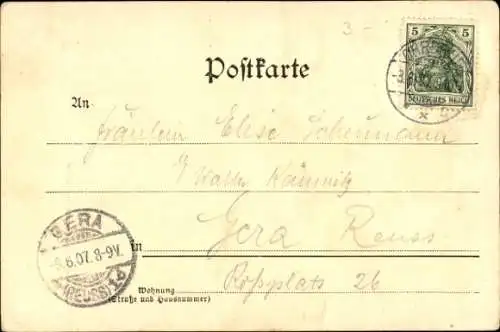 3-
5 5
DEUTSCHES REICH
Postkarte
An
Fräulein Elise Scheumann
Gera Reuss
in
Roßplatz 26
Wohnung
(Straße und Hausnummer)
GERA
6.07. 8-9V.
(REUSS)